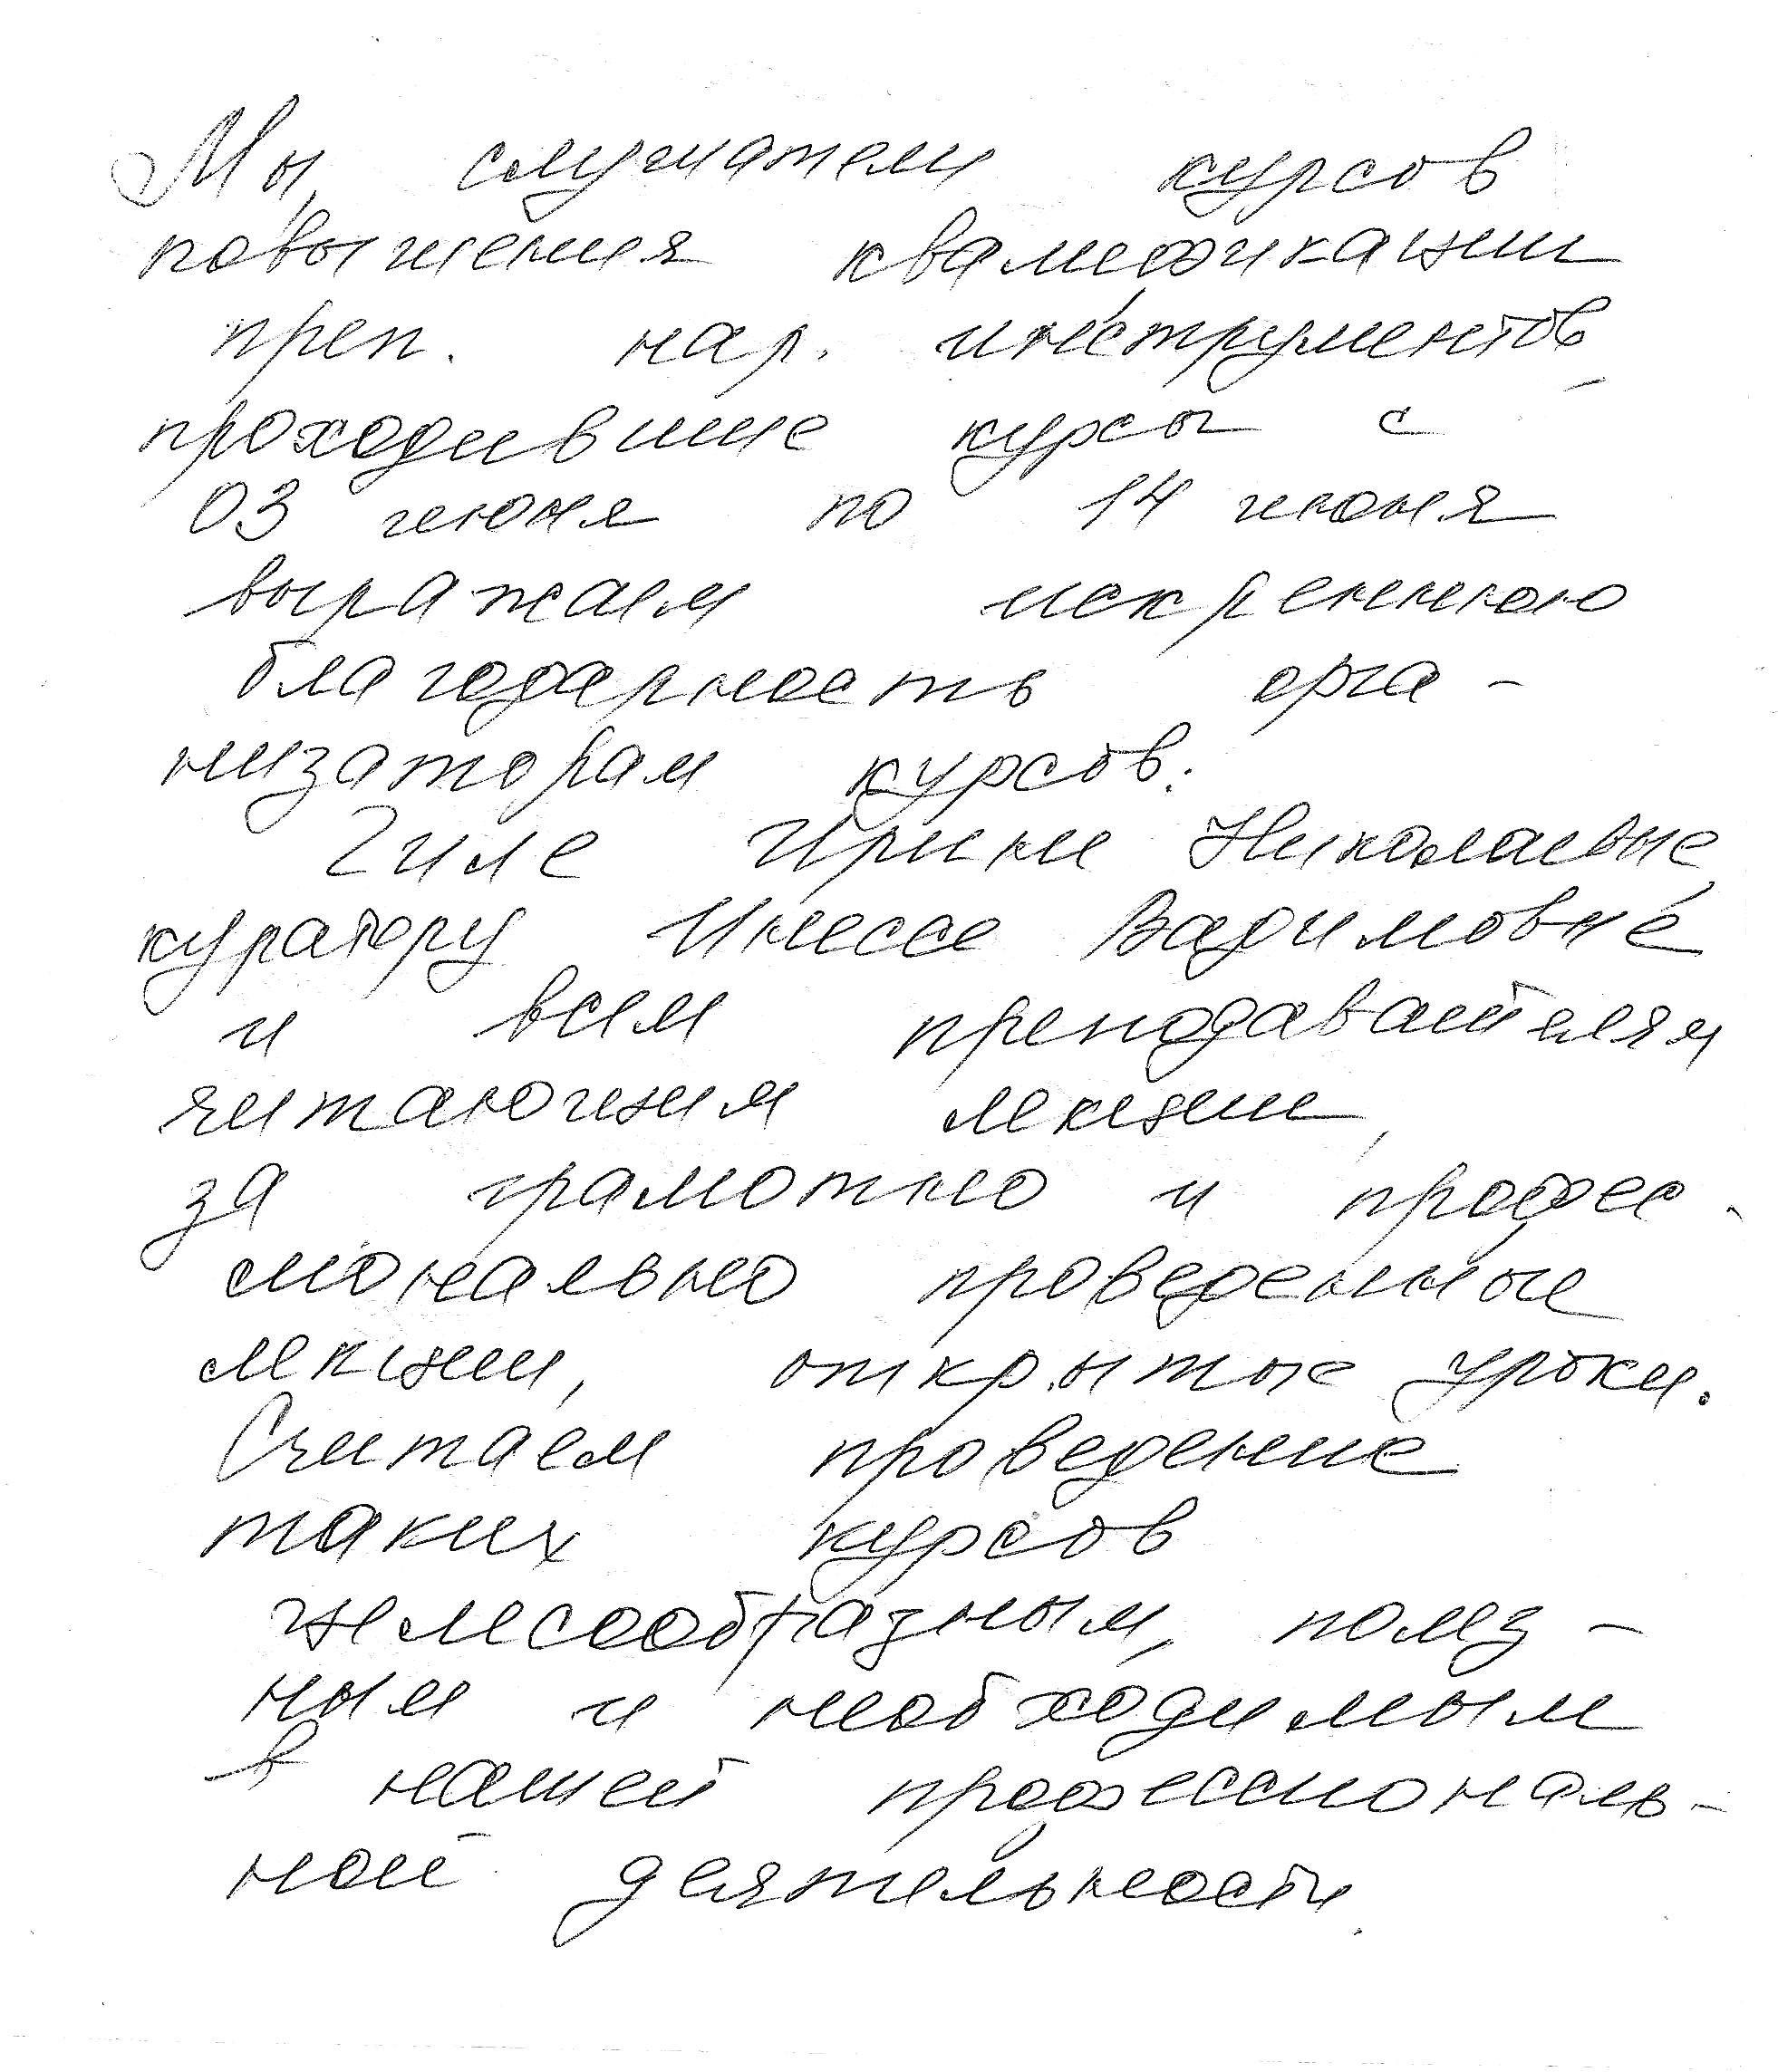 Мы, слушатели курсов
повышения квалификации
преп. нар. инструментов,
проходившие курсы с
03 июня по 14 июня
выражаем искреннюю
благодарность орга-
низаторам курсов.
Ирине Николаевне,
куратору Инессе Вадимовне
и всем преподавателям
читающим лекции,
за грамотно и профес-
сионально проведенные
лекции, открытые уроки.
Считаем проведение
таких курсов
целесообразным, полез-
ным и необходимым
в нашей профессиональ-
ной деятельности.